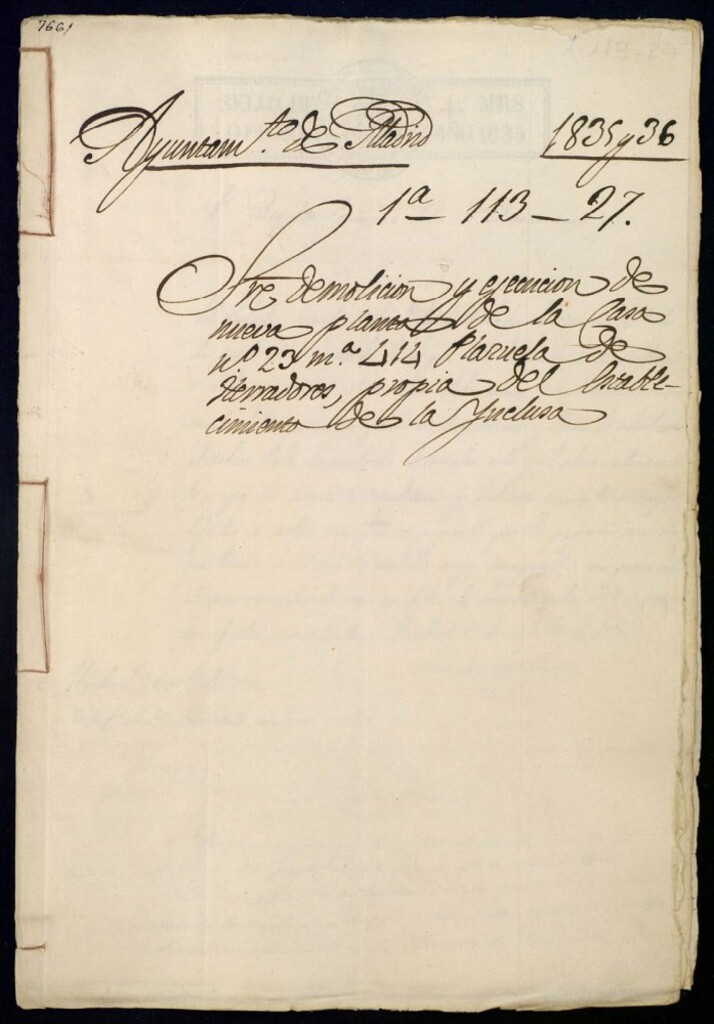 7661
Ayuntam.to de Madrid 1835 y 36
1a - 113 - 27.
Sre demolicion y ejecucion de
nueva planta de la Casa
n.o 23 m.a 414 Plazuela de
Herradores, propia del Estable-
cimiento de la Ynclusa